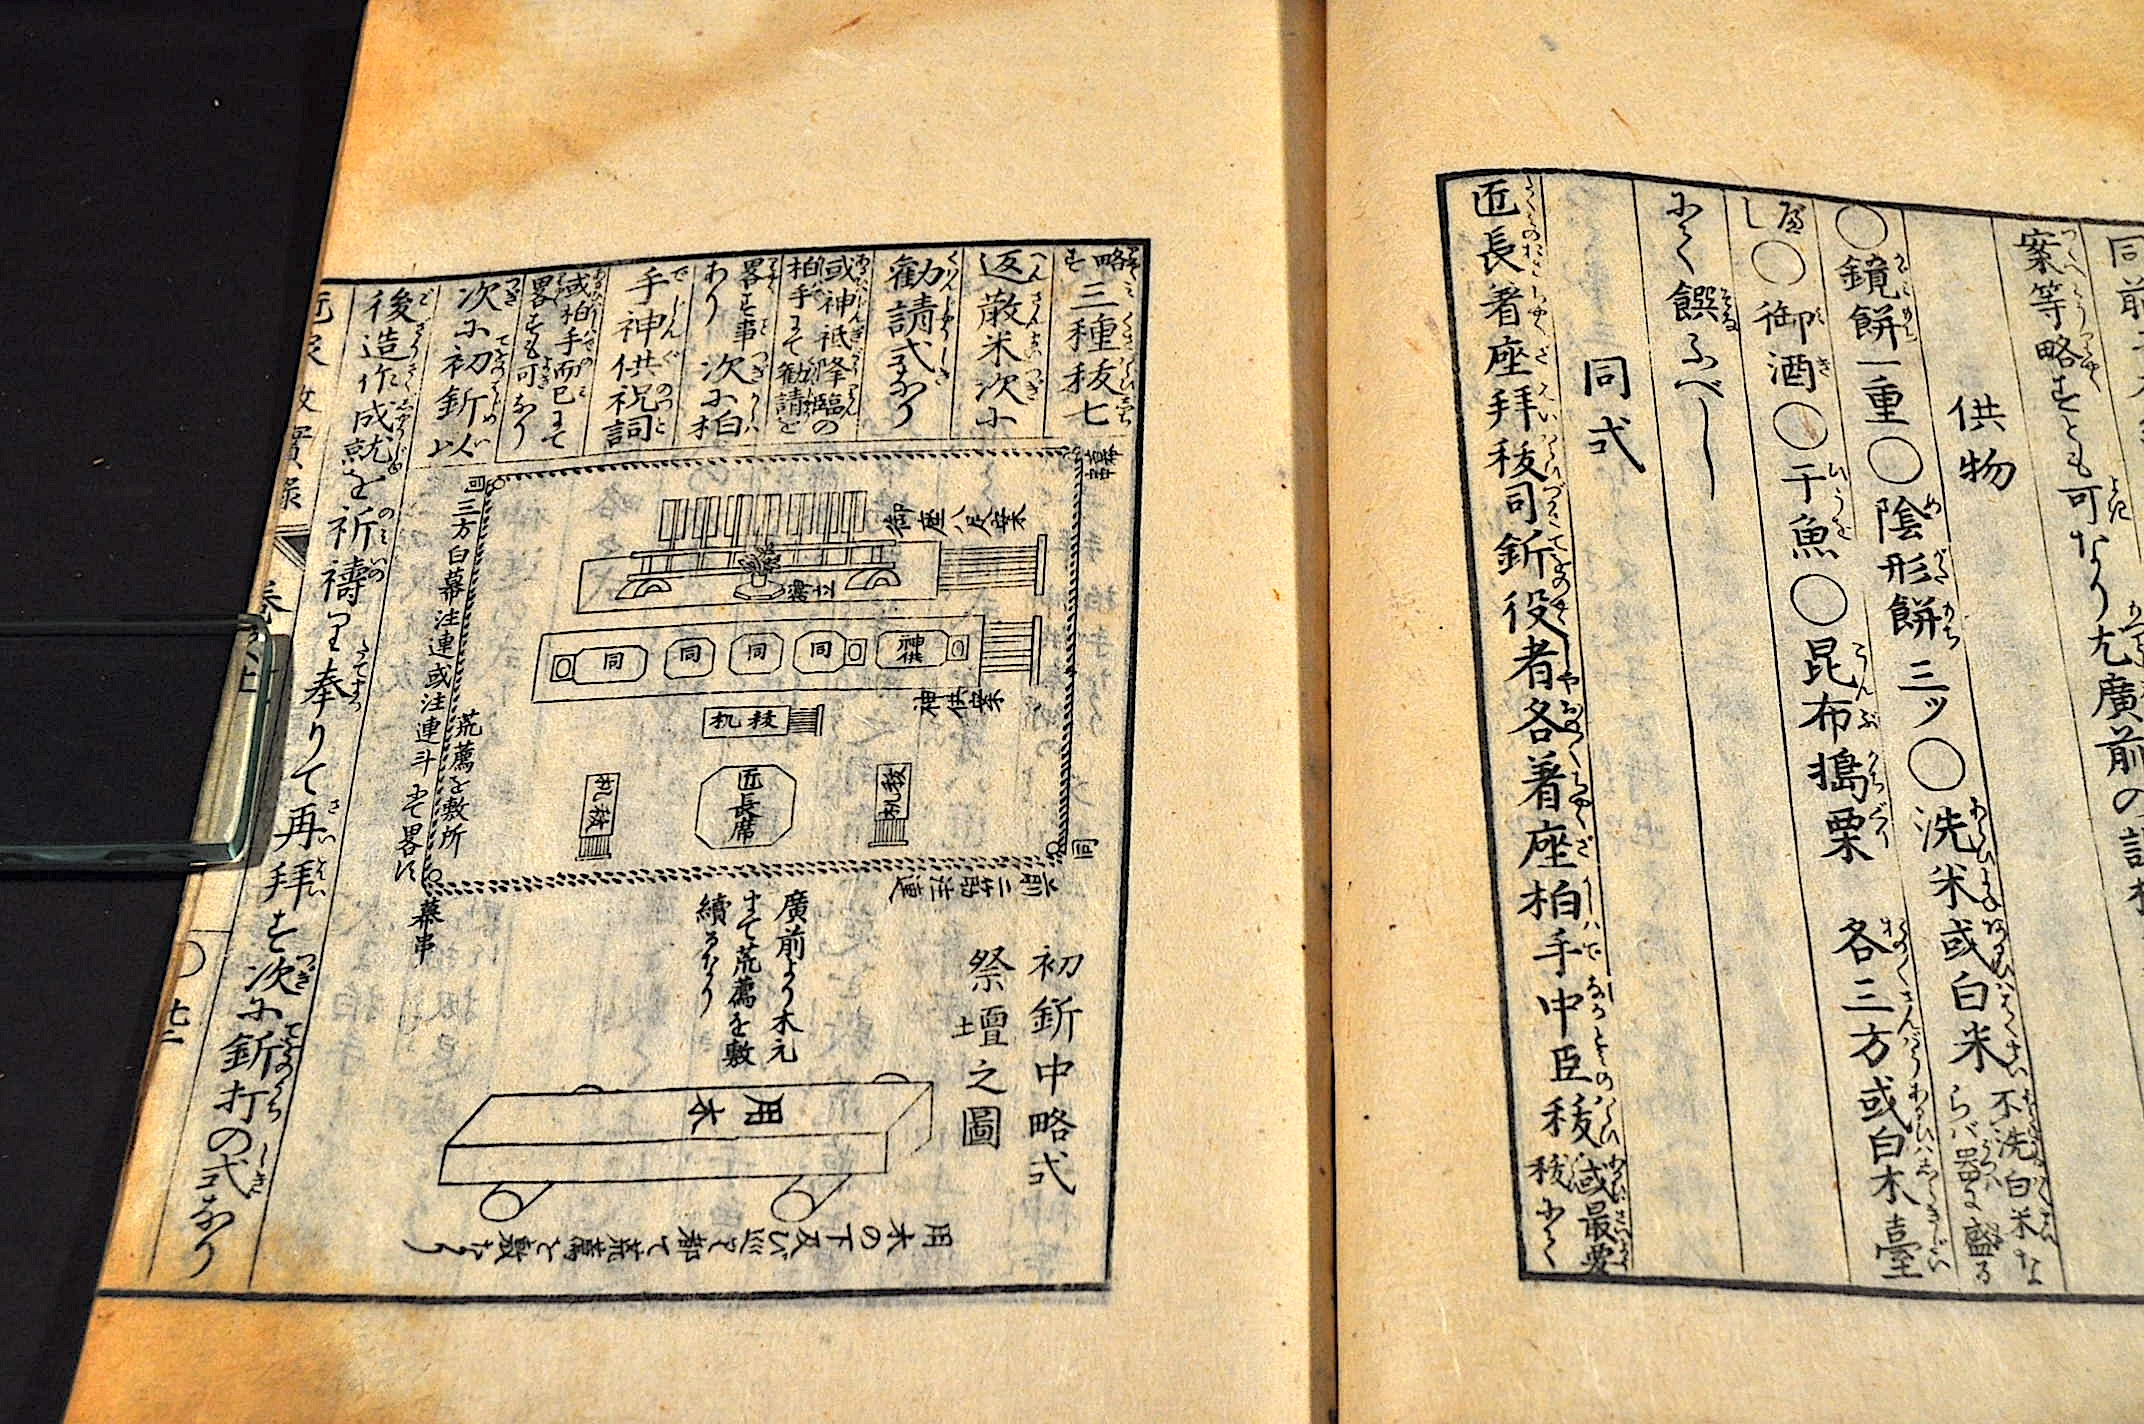 案等略すとも可なり尤廣前の
供物
○鏡餅一重○陰形餅三ツ○洗米或白米不洗白米ならバ器に盛る
べし○御酒○干魚○昆布搗栗 各三方或白木臺
にて饌ふべし
同式
匠長着座拜秡司釿役者各着座柏手中臣秡或最要秡にて
略す三種秡七
返散米次に
勧請式あり
或神祗降臨の柏手にて勧請を
畧す事あり 次に柏
手神供祝詞
或柏手而已にて畧すも可なり
次に初釿以
後造作成就を祈禱り奉りて再拜す次に釿打の式あり
幕串
御座八足案
神供
同
同
同
同
神供案
秡机
匠長席
秡机
秡机
同
同
三方白幕注連或注連斗にて畧す
荒薦を敷所
幕串
廣前より木元
まて荒薦を敷
續るなり
初釿中略式
祭壇之圖
土
用木
用木の下及び巡りて都て荒薦を敷なり